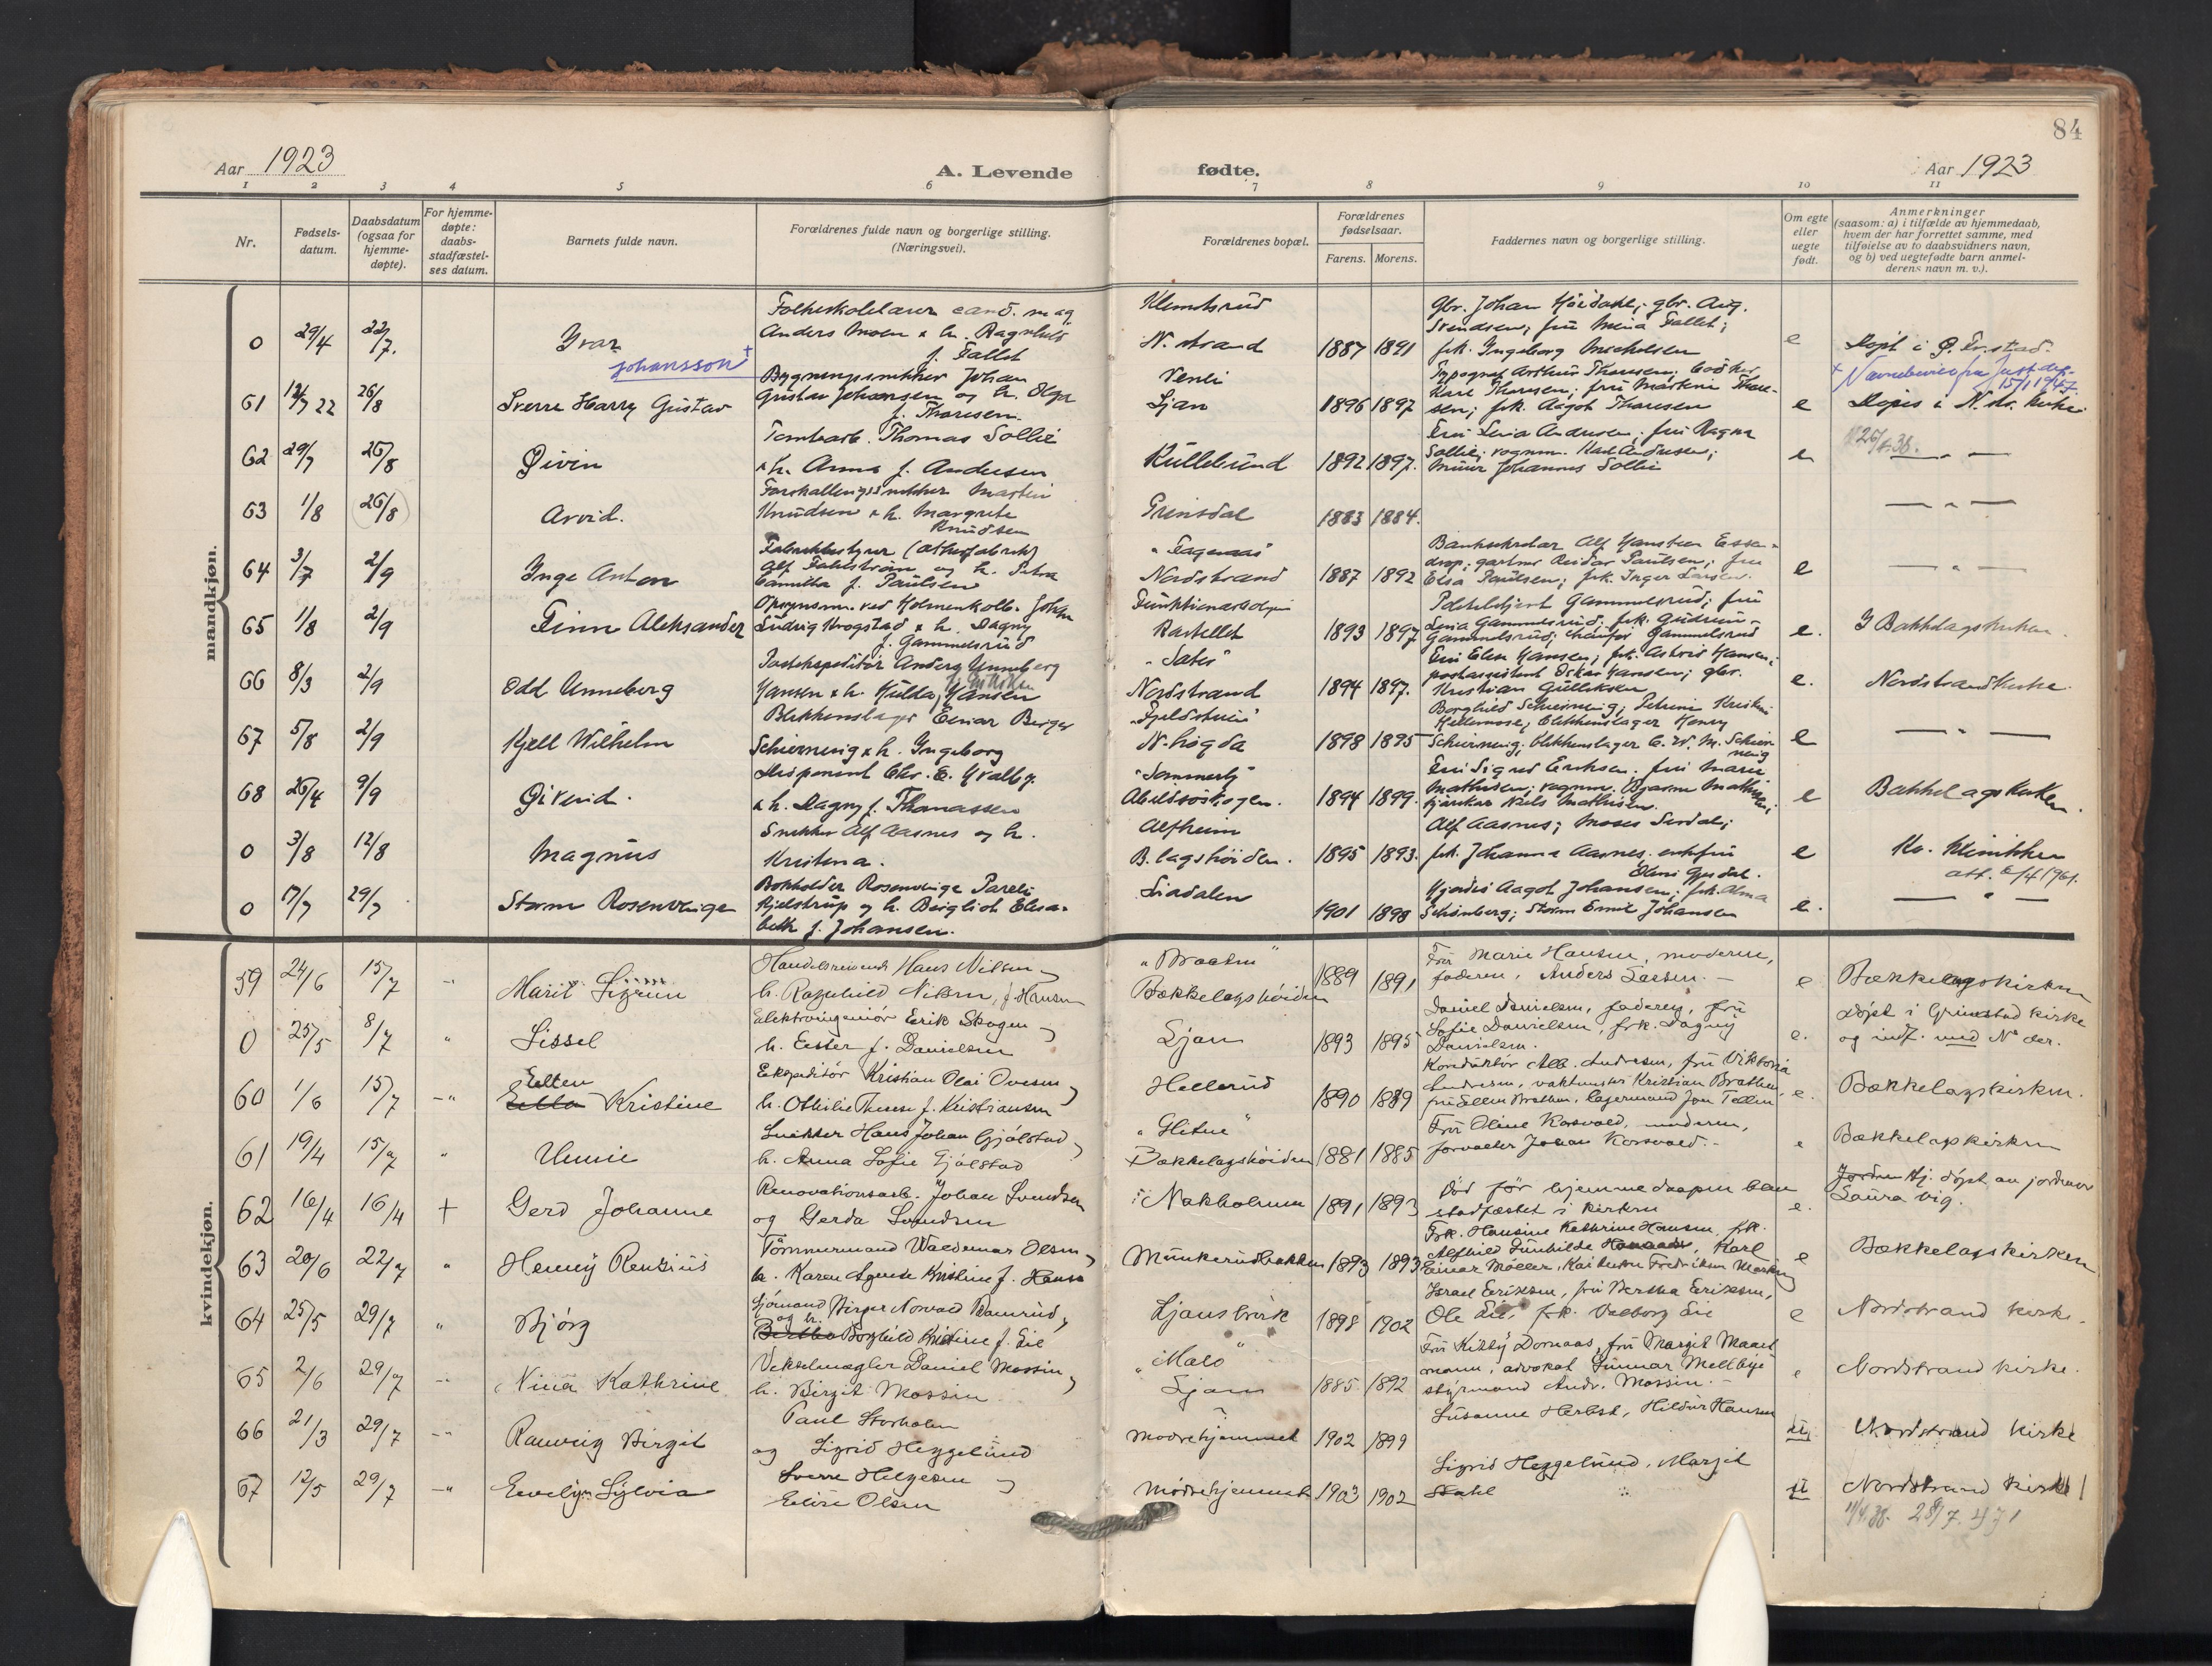 84
Aar 1923 A. Levende fødte. Aar 1923
1 2 3 4 5 6 7 8 9 10 11
Nr.
Fødselsdatum.
Daabsdatum (ogsaa for hjemmedøpte).
For hjemmedøpte: daabsstadfæstelses datum.
Barnets fulde navn.
Forældrenes fulde navn og borgerlige stilling. (Næringsvei).
Forældrenes bopæl.
Forældrenes fødselsaar.
Farens. Morens.
Faddernes navn og borgerlige stilling.
Om egte eller uegte født.
Anmerkninger
(saasom: a) i tilfælde av hjemmedaab,
hvem der har forrettet samme, med
tilføielse av to daabsvidners navn,
og b) ved uegtefødte barn anmel-
derens navn m. v.).
mandkjøn.
Folkeskolelærer cand. mag
Anders Moen & h.
f. Fallet
0 29/4 22/7. Ivar
Klemetsrud
N. strand 1887 1891
Gbr. Johan gbr. Aug.
Svendsen; fru Fallet;
frk. Ingeborg
e
Johansson +
Johan
Gustav Johansen og h. Olga
f. Thoresen.
61 12/7 22 26/8 Sverre Harry Gustav
Venli
Ljan 1896 1897
Typograf Arthur Thoresen;
Thoresen; fru Martine Thore-
sen; frk. Aagot Thoresen
e
15/1 1947.
N. str. kirke
Thomas Sollie
& h. Anna f. Andersen
62 29/7 26/8 Øivin
Kullebund 1892 1897.
Andersen; fru Ragna
Sollie; vognm. Karl Andersen;
Murer Johannes Sollie
e
26/4 38.
— " —
63 1/8 26/8 Arvid.
Forskallingssnekker Martin
Knudsen & h. Margrete
Knudsen
Grinsdal 1883 1884.
— " —
64 3/7 2/9 Inge Anton
Alf Fahlstrøm og h. Petra
Camilla f. Paulsen
Nordstrand 1887 1892
Banksekretær Alf Hansteen Essen-
drop; gartner Reidar Paulsen; fru
Elsa Paulsen; frk. Inger Larsen.
e
— " —
65 1/8 2/9 Finn Aleksander
Opsynsm. ved Holmenkolb. Johan
Ludvig Krogstad & h. Dagny
f. Gammelsrud
Funktionærboligen
Kastellet 1893 1897
Gammelsrud; fru
Gammelsrud; frk. Gudrun
Gammelsrud; chauffør Gammelsrud
e.
I Bækkelagskirken.
66 8/3 2/9 Odd Unneberg
Postekspeditør Anders Unneberg
Hansen & h. Hulda Hansen
Nordstrand 1894 1897.
Hansen; frk. Astrid Hansen;
postassistent Oskar Hansen; gbr.
Kristian Gulliksen
e.
Nordstrand kirke.
67 5/8 2/9 Kjell Wilhelm
Blikkenslager Einar Birger
Schierning & h. Ingeborg
N. høgda 1898 1895
Borghild Schierning; Petrine
blikkenslager Henry
Schierning; blikkenslager C. W. M. Schier-
ning
e
— " —
68 26/4 9/9 Øivind.
Disponent Chr. E. Hvalby
& h. Dagny f. Thomassen
Abildsøskogen. 1894 1899.
Fru Sigrid Eriksen; fru Marie
Mathisen; vognm. Bjarne Mathisen;
Niels Mathisen.
e
Bækkelagskirken.
0 3/8 12/8 Magnus
Snekker Alf Aasnes og h.
Kristina.
Alfheim
B. lagshøiden. 1895 1893.
Alf Aasnes; Moses
frk. Johanna Aasnes; enkefru
e
Kv. klinikken
att. 2/4 1961.
0 17/7 29/7 Storm Rosenvinge
Bokholder Rosenvinge Pareli
Kjelstrup og h. Bergliot Elisa-
beth f. Johansen.
Liadalen 1901 1898
Hjørdis Aagot Johansen; frk. Alma
Schønberg; Storm Emil Johansen
e.
— " —
kvindekjøn.
59 24/6 15/7 -"- Marit Sigrun
Handelsreisende Hans Nilsen
h. Ragnhild Nilsen, f. Hansen
"Braaten"
Bækkelagshøiden 1889 1891
Fru Marie Hansen, moderen,
faderen, Anders Larsen. —
e
Bækkelagskirken
0 25/5 8/7 " Sissel
Elektroingeniør Erik Skogen
h. Ester f. Danielsen
Ljan 1893 1895
Daniel Danielsen, faderen, fru
Sofie Danielsen, frk. Dagny
Danielsen.
e.
Døpt i Grimstad kirke
og indf. med No der.
60 1/6 15/7 -"- Ellen
Ella Kristine
Ekspeditør Kristian Olai Ovesen
h. Othilie Therese f. Kristiansen
Hellerud 1890 1889
Konduktør Alb. Andresen, fru Viktoria
Andresen, vaktmester Kristian Brathen
fru Ellen Brathen, lagermand Jon Tellin
e.
Bækkelagskirken.
61 19/4 15/7 " Unnie
Snekker Hans Johan Gjølstad
h. Anna Sofie Gjølstad
"Glitne"
Bækkelagshøiden 1881 1885
Fru Oline Korsvold, moderen,
forvalter Johan Korsvold. -
e
Bækkelagskirken
62 16/4 16/4 + Gerd Johanne
Renovationsarb. Johan Svendsen
og Gerda Svendsen
Nakholmen 1891 1893
Død før hjemmedaapen blev
stadfæstet i kirken
e.
Jorden Hj. døpt av jordmor
Laura Vig.
63 20/6 22/7 " Henny Rensius
Tømmermand Waldemar Olsen
h. Karen Agnete Kristine f. Hansen
Munkerudbakken 1893 1893
Frk. Hansine Kathrine Hansen, frk.
Alfhild Gunhilde, Karl
Einar Møller, Kai Anton Fredriksen
e
Bækkelagskirken
64 25/5 29/7 " Bjørg
Sjømand Birger Norvald Ramrud
og h.
Bertha Borghild Kristine f. Lie
Ljansbruk 1898 1902
Israel Eriksen, fru Bertha Eriksen,
Ole Lie, frk. Valborg Lie
e
Nordstrand kirke.
65 2/6 29/7 -"- Nina Kathrine
Vekselmægler Daniel Mossin
h. Birgit Mossin
"Malo"
Ljan 1885 1892
Fru Kitty Dornaas, fru Margit Maart-
mann, advokat Gunnar Mellbye
styrmand Andr. Mossin. -
e
Nordstrand kirke.
66 21/3 29/7 -"- Ranveig Birgit
Paul Storholm
og Sigrid Heggelund
Mødrehjemmet 1902 1899
Susanne Herbst, Hildur Hansen
u.
Nordstrand kirke
67 12/5 29/7 -"- Evelyn Sylvia
Sverre Helgesen
Elise Olsen
Mødrehjemmet 1903 1902
Sigrid Heggelund, Margit
Stahl
u
Nordstrand kirke
11/4 38. 28/7